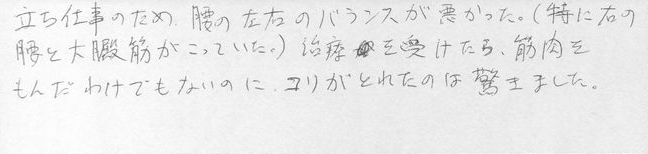 立ち仕事のため、腰の左右のバランスが悪かった。(特に右の
腰と大臀筋がこっていた。)治療を受けたら、筋肉を
もんだわけでもないのに、コリがとれたのは驚きました。